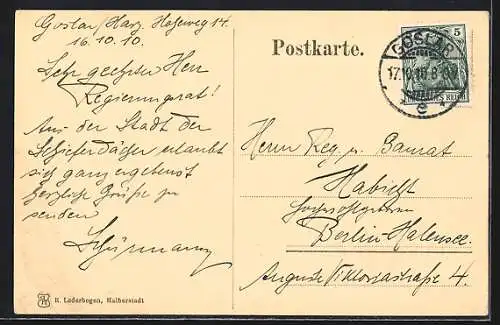 Goslar/Harz, Hoheweg 14.
16.10.10.
Sehr geehrter Herr
Regierungsrat!
Aus der Stadt der
Schieferdächer erlaubt
sich ganz ergebenst
herzliche Grüße zu
senden
Schürmann
R. Lederbogen, Halberstadt
Postkarte.
5
GOSLAR
17.10.10.8-9V
DEUTSCHES REICH
Herrn Reg. u. Baurat
Habicht
Hochwohlgeboren
Berlin-Halensee.
Auguste Viktoriastraße 4.